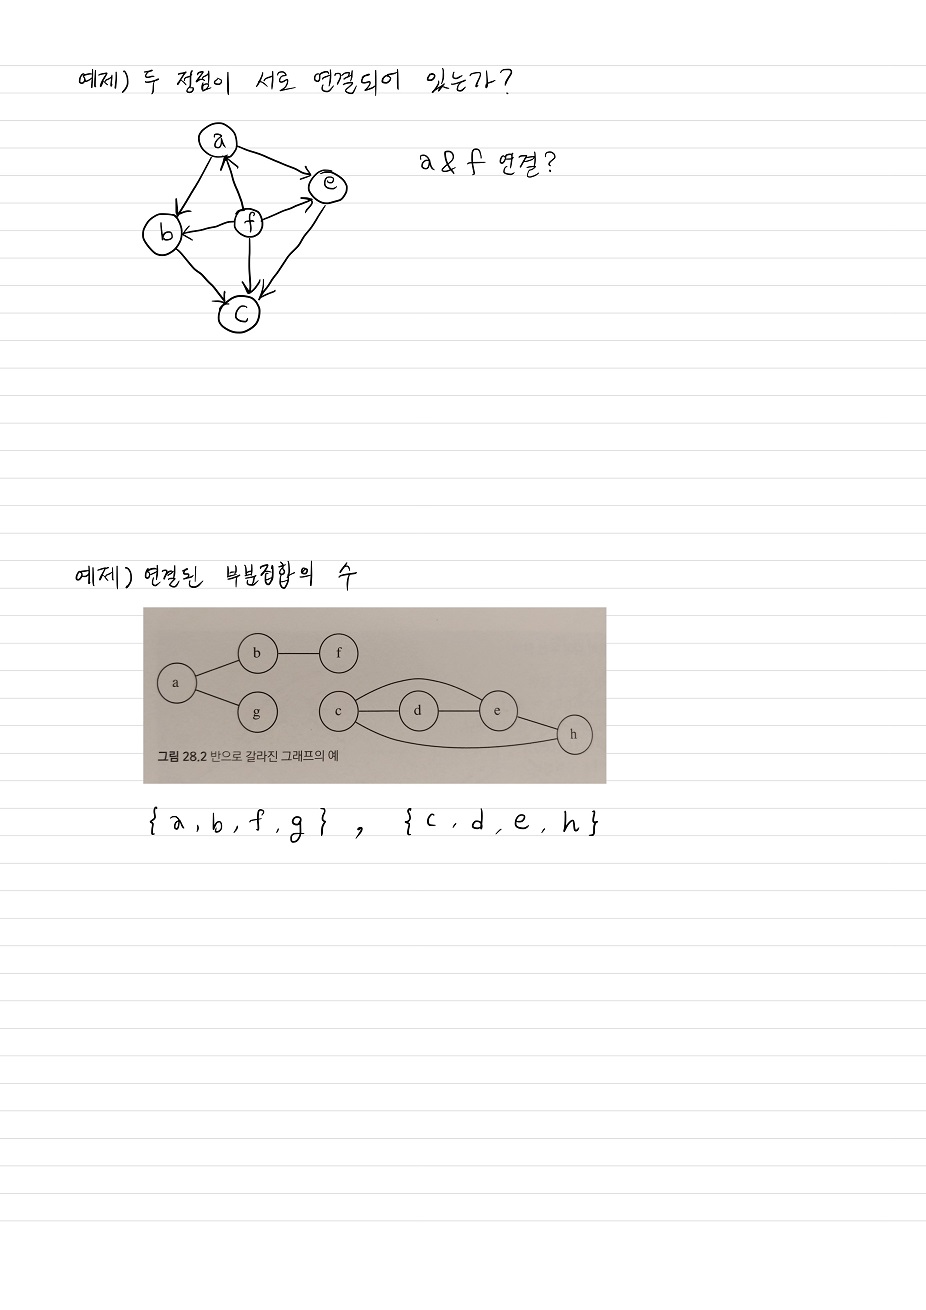 예제) 두 정점이 서로 연결되어 있는가?
a & f 연결?
a
e
b
f
c
예제) 연결된 부분집합의 수
b
f
a
g
c
d
e
h
그림 28.2 반으로 갈라진 그래프의 예
{a, b, f, g} , {c, d, e, h}